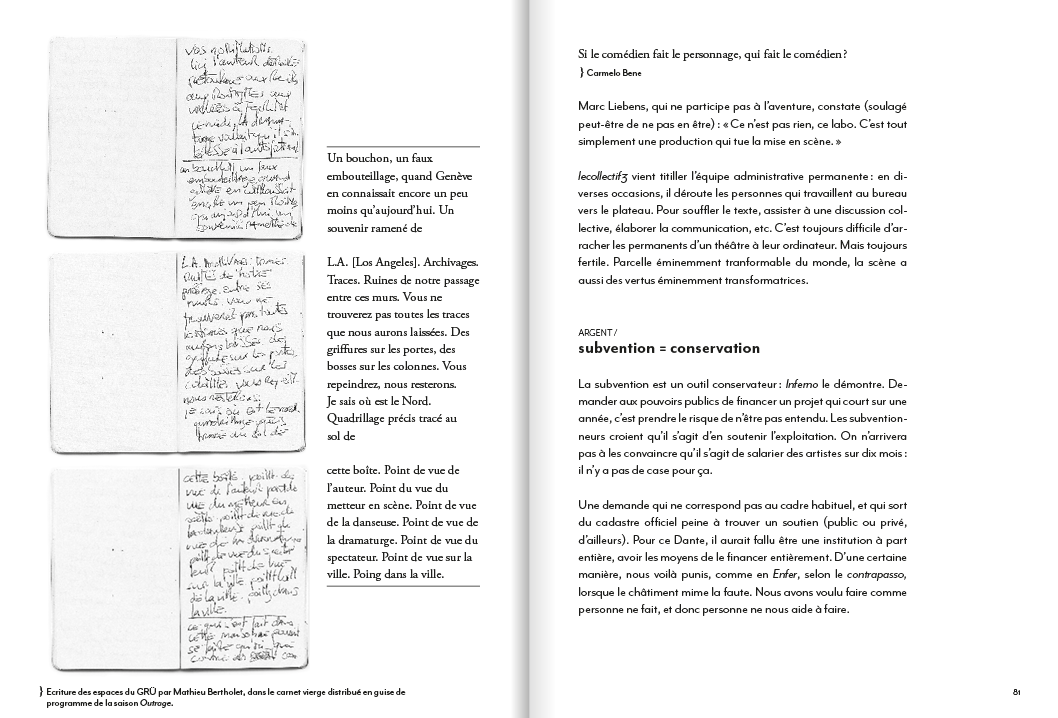 un bouchon, un faux
embouteillage, quand
L.A. Archivages. Traces.
Ruines de notre
passage entre ces
murs. Vous ne
trouverez pas toutes
les traces que nous
aurons laissées. Des
griffures sur les portes,
des bosses sur les
colonnes. Vous repein-
nous resterons.
Je sais où est le nord.
tracé au sol de
cette boîte. Point de
vue de l'auteur. Point de
vue du metteur en
scène. Point de vue de
la danseuse. Point de
vue de la dramaturge
sur la ville. Poing
dans
la ville.
Un bouchon, un faux
embouteillage, quand Genève
en connaissait encore un peu
moins qu'aujourd'hui. Un
souvenir ramené de
L.A. [Los Angeles]. Archivages.
Traces. Ruines de notre passage
entre ces murs. Vous ne
trouverez pas toutes les traces
que nous aurons laissées. Des
griffures sur les portes, des
bosses sur les colonnes. Vous
repeindrez, nous resterons.
Je sais où est le Nord.
Quadrillage précis tracé au
sol de
cette boîte. Point de vue de
l'auteur. Point du vue du
metteur en scène. Point de vue
de la danseuse. Point de vue de
la dramaturge. Point de vue du
spectateur. Point de vue sur la
ville. Poing dans la ville.
} Ecriture des espaces du GRÜ par Mathieu Bertholet, dans le carnet vierge distribué en guise de
programme de la saison Outrage.
Si le comédien fait le personnage, qui fait le comédien ?
} Carmelo Bene
Marc Liebens, qui ne participe pas à l'aventure, constate (soulagé
peut-être de ne pas en être) : « Ce n'est pas rien, ce labo. C'est tout
simplement une production qui tue la mise en scène. »
lecollectif3 vient titiller l'équipe administrative permanente : en di-
verses occasions, il déroute les personnes qui travaillent au bureau
vers le plateau. Pour souffler le texte, assister à une discussion col-
lective, élaborer la communication, etc. C'est toujours difficile d'ar-
racher les permanents d'un théâtre à leur ordinateur. Mais toujours
fertile. Parcelle éminemment tranformable du monde, la scène a
aussi des vertus éminemment transformatrices.
ARGENT /
subvention = conservation
La subvention est un outil conservateur : Inferno le démontre. De-
mander aux pouvoirs publics de financer un projet qui court sur une
année, c'est prendre le risque de n'être pas entendu. Les subvention-
neurs croient qu'il s'agit d'en soutenir l'exploitation. On n'arrivera
pas à les convaincre qu'il s'agit de salarier des artistes sur dix mois :
il n'y a pas de case pour ça.
Une demande qui ne correspond pas au cadre habituel, et qui sort
du cadastre officiel peine à trouver un soutien (public ou privé,
d'ailleurs). Pour ce Dante, il aurait fallu être une institution à part
entière, avoir les moyens de le financer entièrement. D'une certaine
manière, nous voilà punis, comme en Enfer, selon le contrapasso,
lorsque le châtiment mime la faute. Nous avons voulu faire comme
personne ne fait, et donc personne ne nous aide à faire.
81